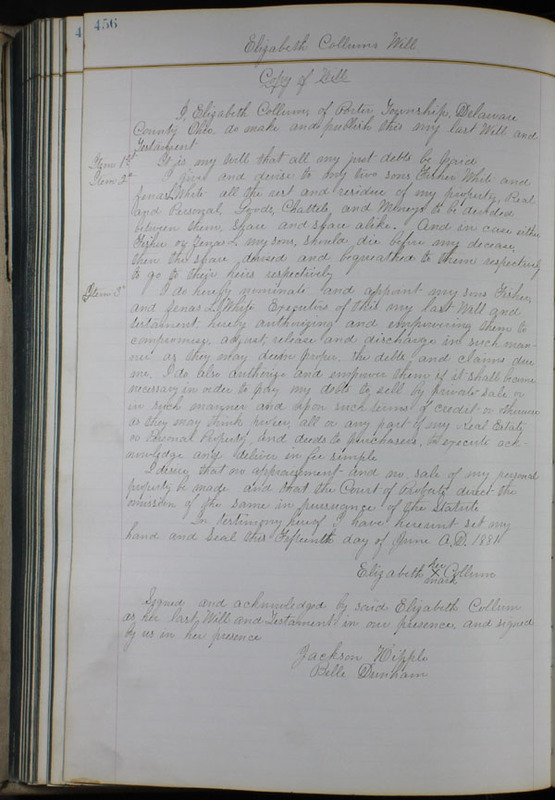 4
456
Elizabeth Collums Will
Copy of Will
I, Elizabeth Collum, of Porter Township, Delaware
County Ohio, do make and publish this my last Will and
Testament
Item 1st It is my will that all my just debts be paid
Item 2d I give and devise to my two sons Fisher White and
Jonas L White all the rest and residue of my property, Real
and Personal, Goods, Chattels, and Moneys to be divided
between them, share and share alike. And in case either
Fisher or Jonas L my sons, should die before my decease,
then the share devised and bequeathed to them respectively
to go to their heirs respectively
Item 3d I do hereby nominate and appoint my sons Fisher
and Jonas L White Executors of this my last Will and
testament hereby authorizing and empowering them to
compromise adjust, release and discharge in such man-
ner as they may deem proper the debts and claims due
me. I do also authorize and empower them if it shall become
necessary in order to pay my debts to sell by private sale or
in such manner and upon such terms of credit or otherwise
as they may think proper, all or any part of my real Estate
or Personal Property, and deeds to purchasers, to execute ack-
nowledge and deliver in fee simple
I desire that no appraisement and no sale of my personal
property be made and that the Court of Probate direct the
omission of the same in pursuance of the Statute
In testimony hereof I have hereunto set my
hand and Seal this Fifteenth day of June A.D. 1881
Elizabeth her X mark Collum
Signed and acknowledged by said Elizabeth Collum
as her last Will and Testament in our presence and signed
by us in her presence
Jackson Hipple
Belle Dunham